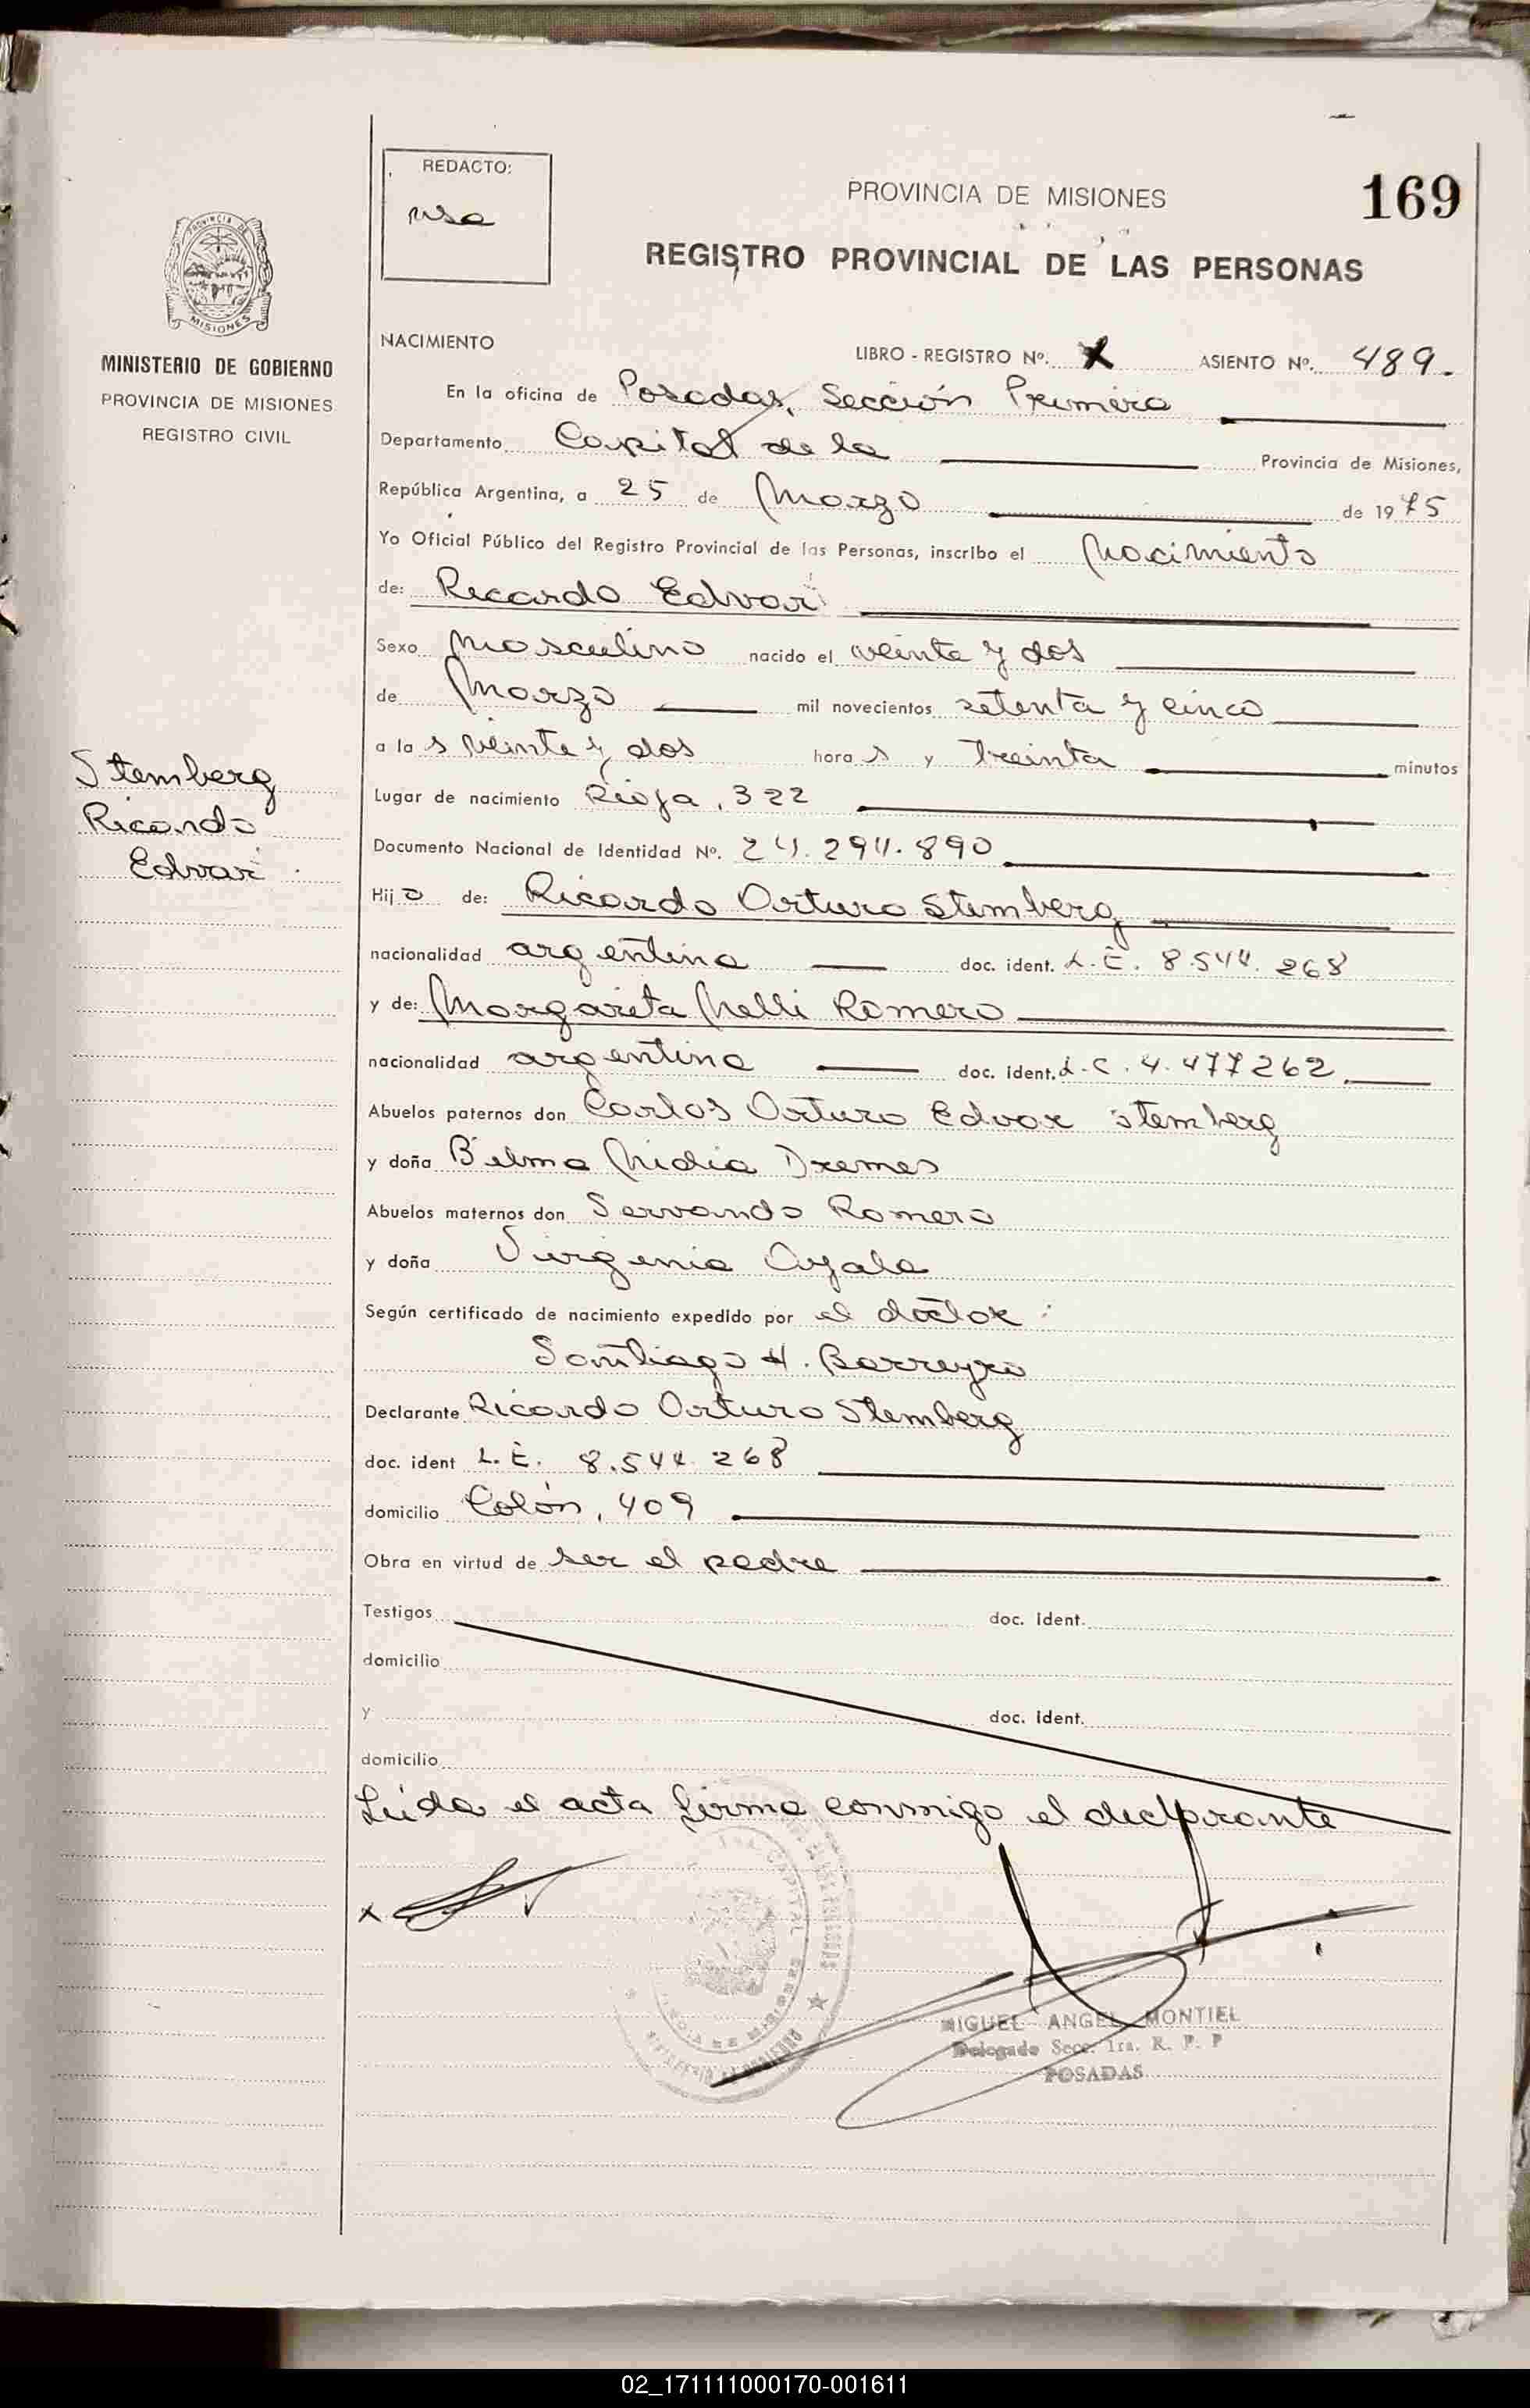 REDACTO:
PROVINCIA DE MISIONES
169
REGISTRO PROVINCIAL DE LAS PERSONAS
MISIONES
MINISTERIO DE GOBIERNO
PROVINCIA DE MISIONES
REGISTRO CIVIL
NACIMIENTO LIBRO - REGISTRO Nº. X ASIENTO Nº. 489.
En la oficina de Posadas, Sección Primera
Departamento Capital de la Provincia de Misiones,
República Argentina, a 25 de Marzo de 1975
Yo Oficial Público del Registro Provincial de las Personas, inscribo el Nacimiento
de: Ricardo Edvar
Sexo Masculino nacido el veinte y dos
de Marzo mil novecientos setenta y cinco
a las veinte y dos horas y Treinta minutos
Stemberg
Ricardo
Edvar
Lugar de nacimiento Rioja, 322
Documento Nacional de Identidad Nº. 24.294.890
Hijo de: Ricardo Arturo Stemberg
nacionalidad argentina doc. ident. L.E. 8.544.268
y de: Margarita Nelli Romero
nacionalidad argentina doc. ident. L.C. 4.477262
Abuelos paternos don Carlos Arturo Edvar Stemberg
y doña Bilma Nidia Dremes
Abuelos maternos don Servando Romero
y doña Virginia Ayala
Según certificado de nacimiento expedido por el doctor:
Santiago H. Barreyro
Declarante Ricardo Arturo Stemberg
doc. ident L.E. 8.544.268
domicilio Colón, 409
Obra en virtud de ser el padre
Testigos doc. ident.
domicilio
y doc. ident.
domicilio
Leida el acta firma conmigo el declarante
x
MIGUEL ANGEL MONTIEL
Delegado Secc. 1ra. R. P. P
POSADAS
02_171111000170-001611